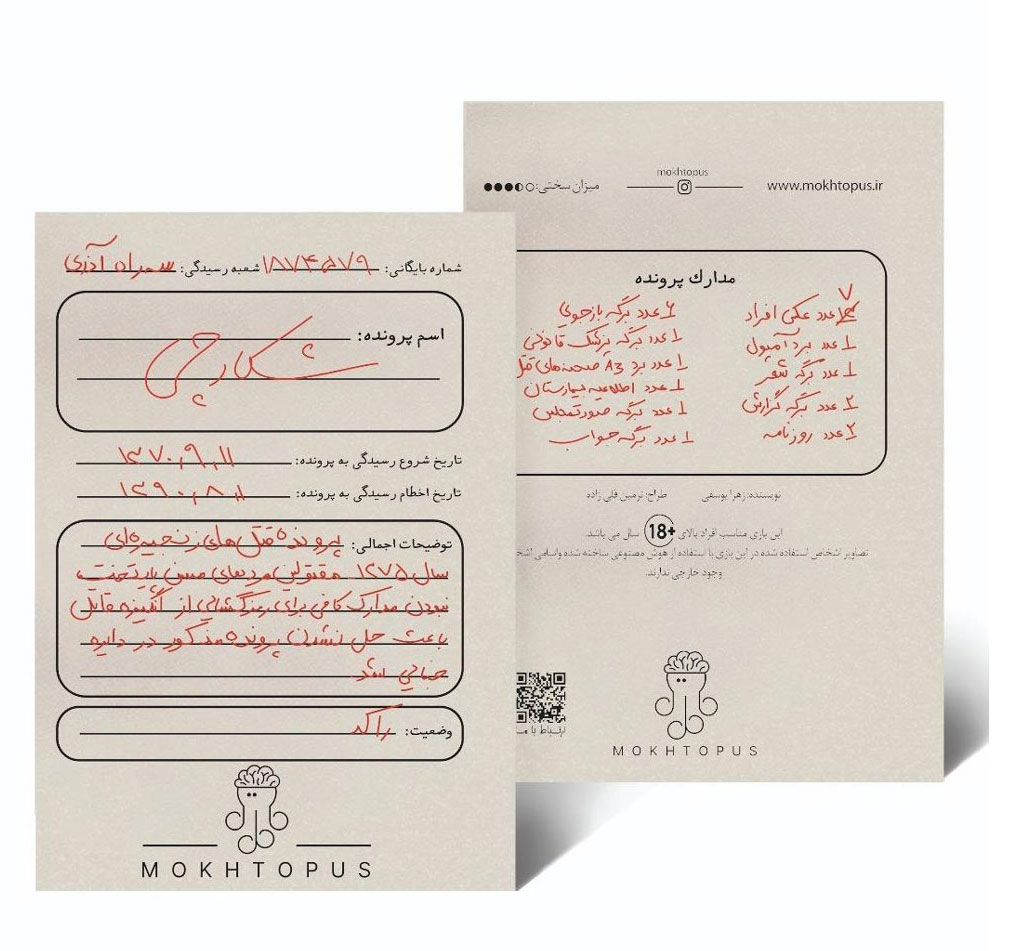 شماره بایگانی: ۱۸۷۴۵۷۹ شعبه رسیدگی:
اسم پرونده:
شکارچی
تاریخ شروع رسیدگی به پرونده: ۱۳۷۰,۹,۱۱
تاریخ اخطام رسیدگی به پرونده: ۱۳۹۰,۸,۱
توضیحات اجمالی: پرونده قتل های زنجیره ای
سال ۱۳۷۵ مقتولین مردهای مسن پایتخت
نبودن مدارک کافی برای رمزگشایی از انگیزه قاتل
باعث حل نشدن پرونده مذکور در دایره
جنایی شد
وضعیت: راکد
MOKHTOPUS
میزان سختی:
mokhtopus
www.mokhtopus.ir
مدارك پرونده
۷ عدد عکس افراد
۱ عدد برد آمپول
۱ عدد برگه شعر
۲ عدد برگه گزارش
۲ عدد روزنامه
۶ عدد برگه بازجوی
۱ عدد برگه پزشک قانونی
۱ عدد برد A3 صحنه های قتل
۱ عدد اطلاعیه بیمارستان
۱ عدد برگه صورتمجلس
۱ عدد برگه جواب
نویسنده: زهرا یوسفی طراح: نرمین قلی زاده
این بازی مناسب افراد بالای 18+ سال می باشد.
تصاویر اشخاص استفاده شده در این بازی با استفاده از هوش مصنوعی ساخته شده واسامی
وجود خارجی ندارند.
ارتباط با
MOKHTOPUS